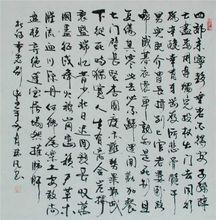 四郊未寧靜垂老不得安子孫陣
亡盡焉用身獨完投杖出門去同行
為辛酸幸有牙齒存所悲骨髓乾男
兒既介冑長揖別上官老妻臥路啼
歲暮衣裳單孰知是死別且復傷其
寒此去必不歸還聞勸加餐土
門壁甚堅杏園度亦難勢異鄴城
下縱死時猶寬人生有離合豈擇
衰盛端憶昔少壯日遲迴竟長嘆萬
國盡征戍烽火被岡巒積屍草木
腥流血川原丹何鄉為樂土安敢尚
盤桓棄絕蓬室居塌然摧肺肝
杜詩垂老別